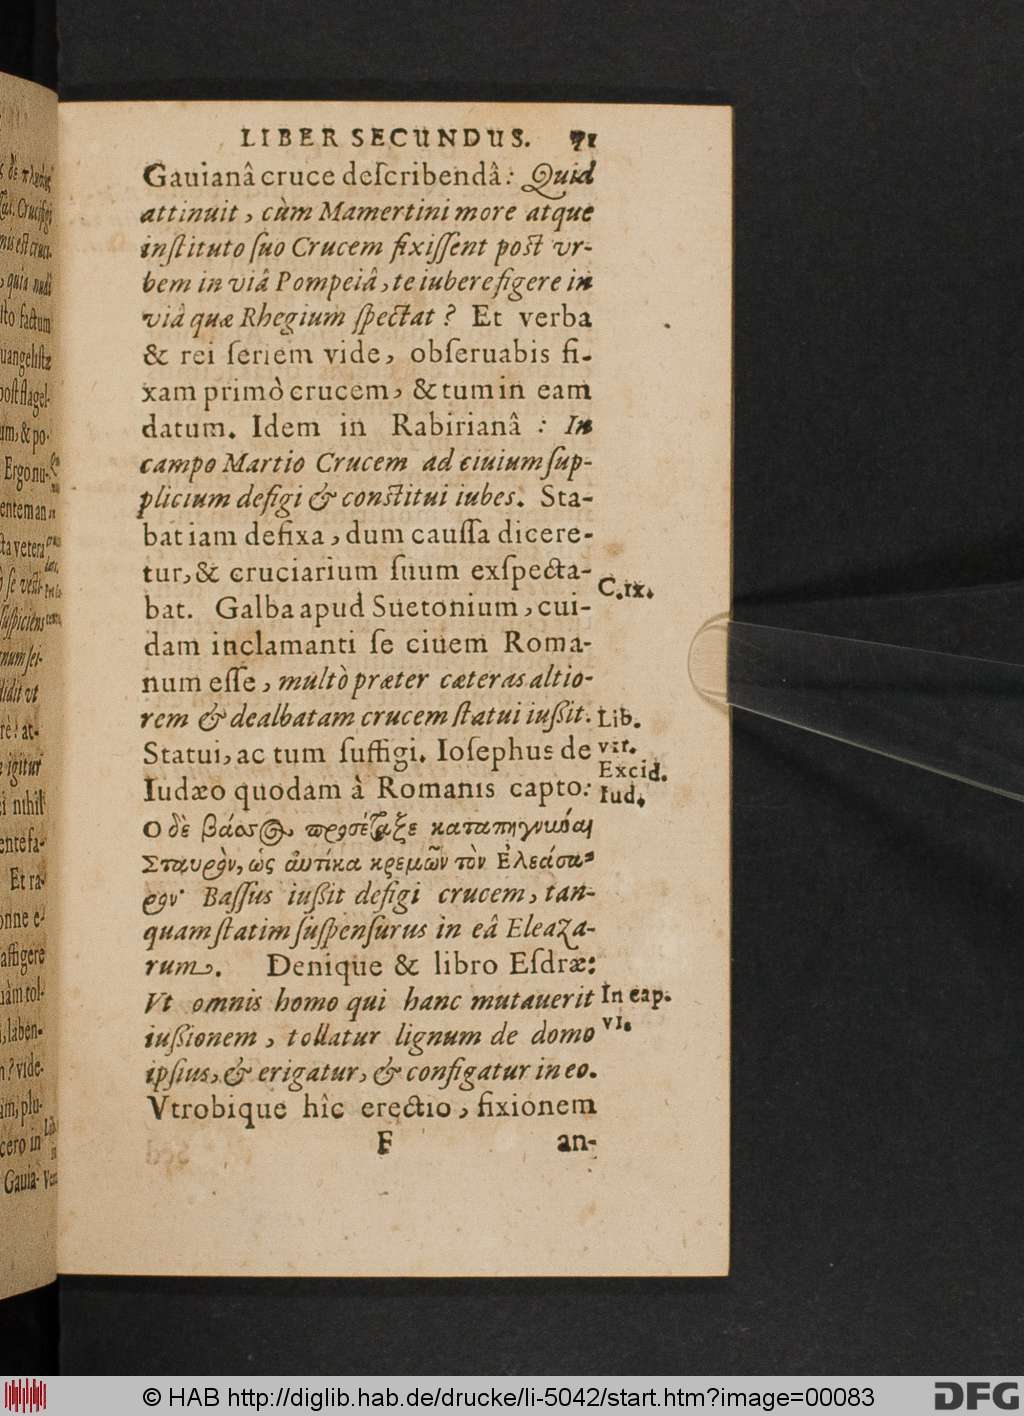 LIBER SECUNDUS. 71
Gauianâ cruce deſcribendâ: Quid
attinuit, cùm Mamertini more atque
inſtituto ſuo Crucem fixiſſent poſt vr-
bem in viâ Pompeiâ, te iubere figere in
viâ quæ Rhegium ſpectat? Et verba
& rei ſeriem vide, obſeruabis fi-
xam primò crucem, & tum in eam
datum. Idem in Rabirianâ: In
campo Martio Crucem ad ciuium ſup-
plicium defigi & conſtitui iubes. Sta-
bat iam defixa, dum cauſſa dicere-
tur, & cruciarium ſuum exſpecta-
bat. Galba apud Suetonium, cui-
C. ix.
dam inclamanti ſe ciuem Roma-
num eſſe, multò præter cæteras altio-
rem & dealbatam crucem ſtatui iuſsit.
Lib.
Statui, ac tum ſuffigi. Ioſephus de
vii.
Excid.
Iudæo quodam à Romanis capto:
Iud.
Ο δὲ βάσσος προσέταξε καταπηγνύναι
Σταυρὸν, ὡς αὐτίκα κρεμῶν τὸν Ἐλεάσα-
ρον· Baſſus iuſsit defigi crucem, tan-
quam ſtatim ſuſpenſurus in eâ Eleaza-
rum. Denique & libro Eſdræ:
Vt omnis homo qui hanc mutauerit
In cap.
iuſsionem, tollatur lignum de domo
VI.
ipſius, & erigatur, & configatur in eo.
Vtrobique hîc erectio, fixionem
F an-
© HAB http://diglib.hab.de/drucke/li-5042/start.htm?image=00083
DFG